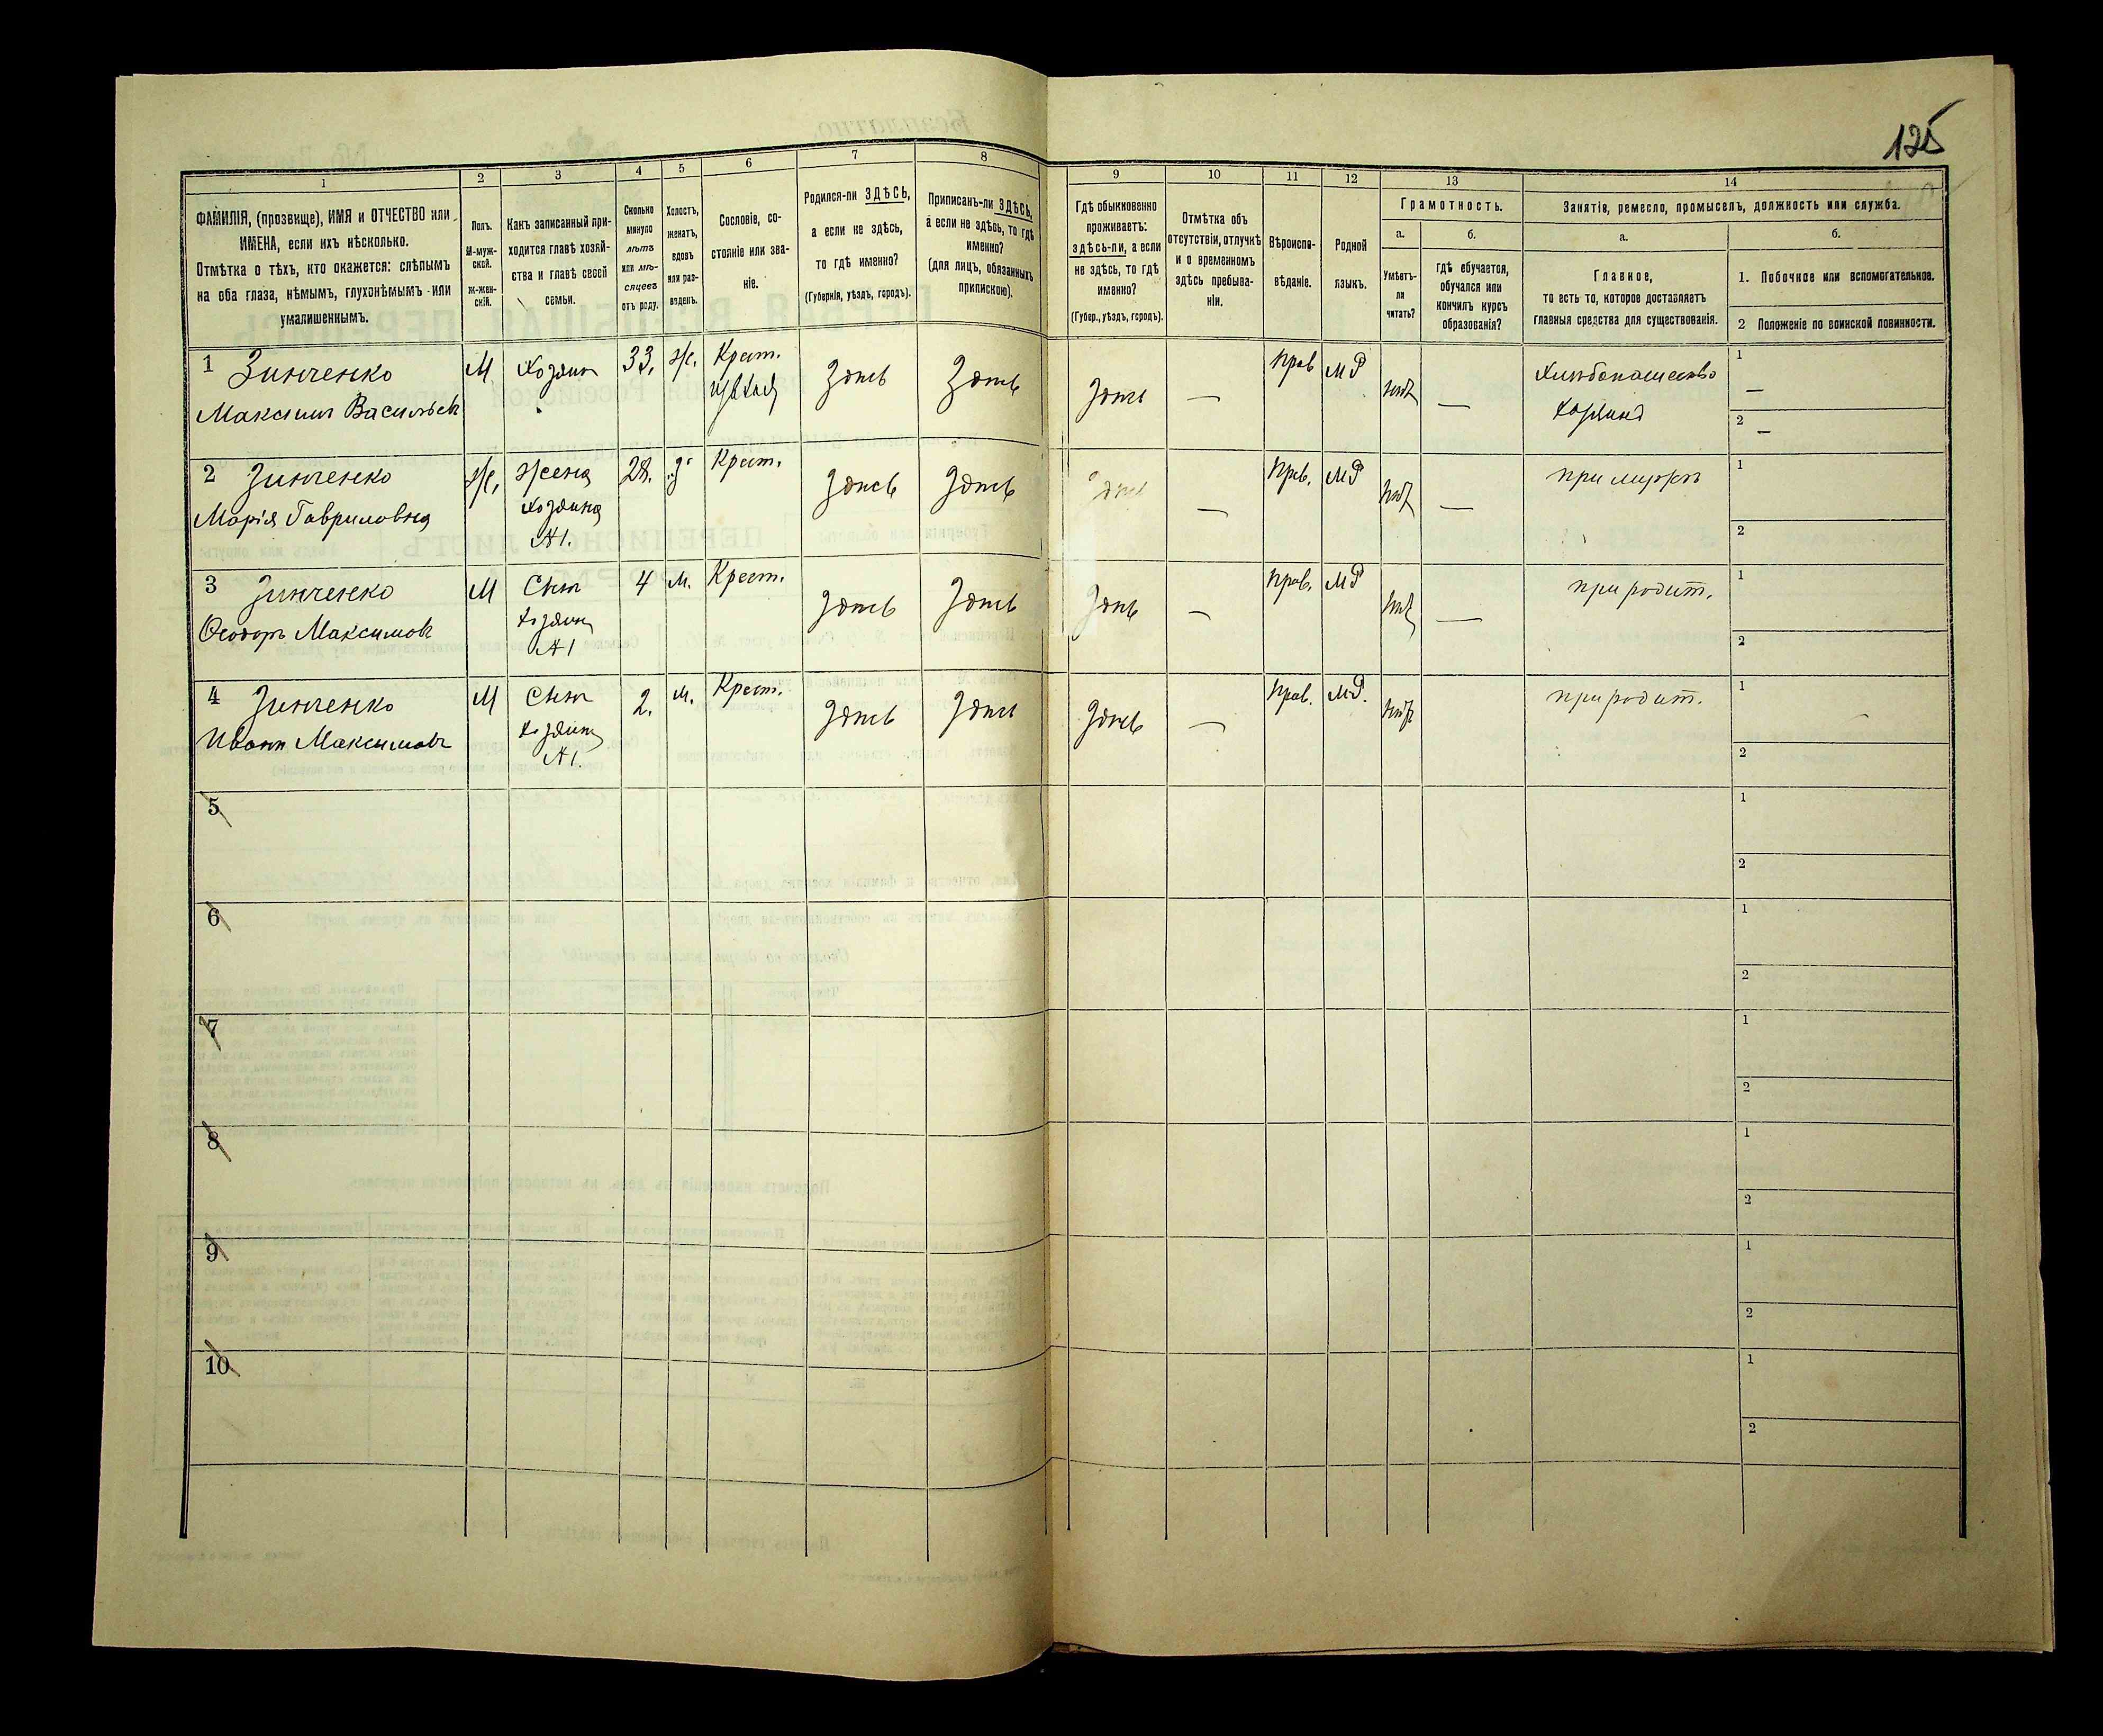 125
1
2
3
4
5
6
7
8
9
10
11
12
13
14
ФАМИЛІЯ, (прозвище), ИМЯ и ОТЧЕСТВО или
ИМЕНА, если ихъ нѣсколько.
Отмѣтка о тѣхъ, кто окажется: слѣпымъ
на оба глаза, нѣмымъ, глухонѣмымъ или
умалишеннымъ.
Полъ.
М-муж-
ской.
Ж-жен-
скій.
Какъ записанный при-
ходится главѣ хозяй-
ства и главѣ своей
семьи.
Сколько
минуло
лѣтъ
или мѣ-
сяцевъ
отъ роду.
Холостъ,
женатъ,
вдовъ
или раз-
веденъ.
Сословіе, со-
стояніе или зва-
ніе.
Родился-ли ЗДѢСЬ,
а если не здѣсь,
то гдѣ именно?
(Губернія, уѣздъ, городъ).
Приписанъ-ли ЗДѢСЬ,
а если не здѣсь, то гдѣ
именно?
(для лицъ, обязанныхъ
припискою).
Гдѣ обыкновенно
проживаетъ:
здѣсь-ли, а если
не здѣсь, то гдѣ
именно?
(Губер., уѣздъ, городъ).
Отмѣтка объ
отсутствіи, отлучкѣ
и о временномъ
здѣсь пребыва-
ніи.
Вѣроиспо-
вѣданіе.
Родной
языкъ.
Грамотность.
а.
б.
Умѣетъ-
ли
читать?
гдѣ обучается,
обучался или
кончилъ курсъ
образованія?
Занятія, ремесло, промыселъ, должность или служба.
а.
б.
Главное,
то есть то, которое доставляетъ
главныя средства для существованія.
1. Побочное или вспомогательное.
2 Положеніе по воинской повинности.
1 Зинченко
Максимъ Васильевъ
М
Хозяинъ
33.
ж.
Крест.
Здѣсь
Здѣсь
Здѣсь
—
Прав
МР
нѣтъ
—
Хлѣбопашество
Хозяинъ
1 —
2 —
2 Зинченко
Марія Гавриловна
Ж.
Жена
Хозяина
№1.
28.
з
Крест.
Здѣсь
Здѣсь
Здѣсь
—
Прав.
МР
нѣтъ
—
при мужѣ
1
2
3 Зинченко
Ѳеодоръ Максимовъ
М
Сынъ
Хозяина
№1
4
М.
Крест.
Здѣсь
Здѣсь
Здѣсь
—
Прав.
МР
нѣтъ
—
при родит.
1
2
4 Зинченко
Иванъ Максимовъ
М
Сынъ
Хозяина
№1.
2.
М.
Крест.
Здѣсь
Здѣсь
Здѣсь
—
Прав.
МР.
нѣтъ
при родит.
1
2
5
1
2
6
1
2
7
1
2
8
1
2
9
1
2
10
1
2